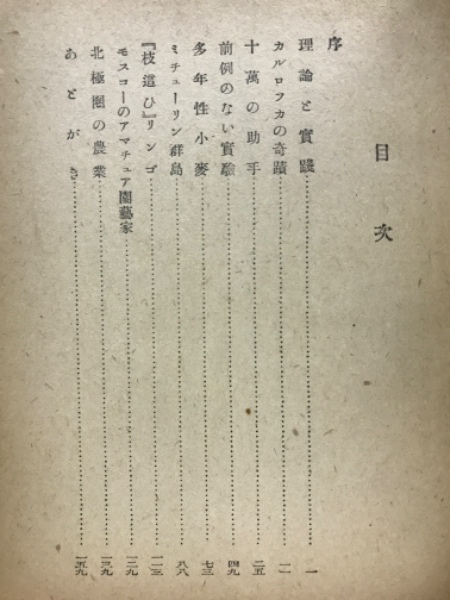 目次
序
理論と實踐 一
カルロフカの奇蹟 一一
十萬の助手 二五
前例のない實驗 四九
多年性小麥 七三
ミチューリン群島 八八
『枝這ひ』リンゴ 一一三
モスコーのアマチュア園藝家 一二九
北極圏の農業 一三九
あとがき 一五九